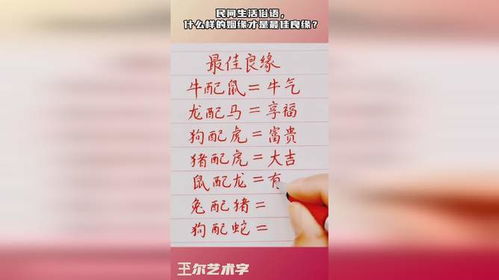 民间生活俗语,
什么样的姻缘才是最佳良缘?
最佳良缘
牛配鼠=牛气
龙配马=享福
狗配虎=富贵
猪配虎=大吉
鼠配龙=有
兔配猪=
狗配蛇=
王尔艺术字